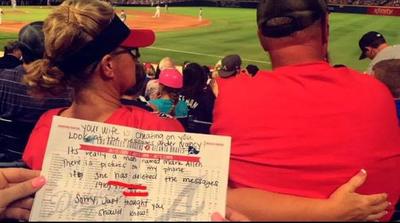 Your wife is cheating on you
Look at the messages under Nancy
Its really a man named Mark Allen
There's pictures on my phone
if she has deleted the messages
Sorry, Just thought you
should know!